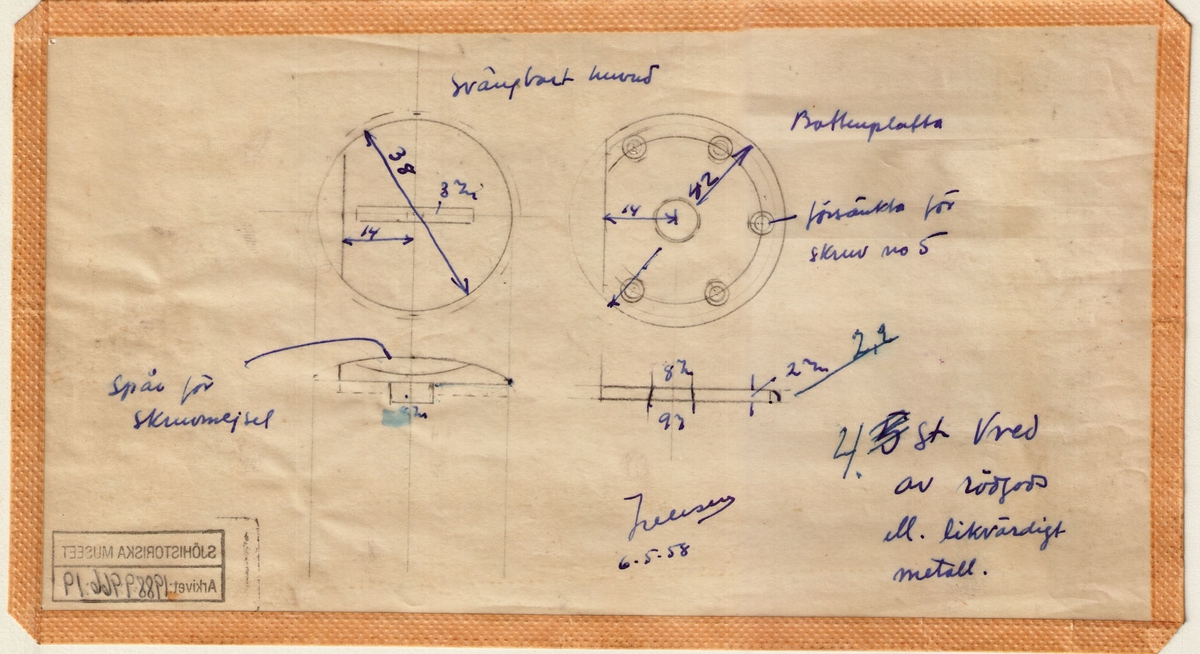 Svängbart huvud
Bottenplatta
38
3 7/m
14
42
14
försänkta för
skruv no 5
Spår för
skruvmejsel
8 7/m
9,3
2 7/m
2,2
4. St Vred
av rödgods
ell. likvärdigt
metall.
6.5.58
SJÖHISTORISKA MUSEET
Arkivet: